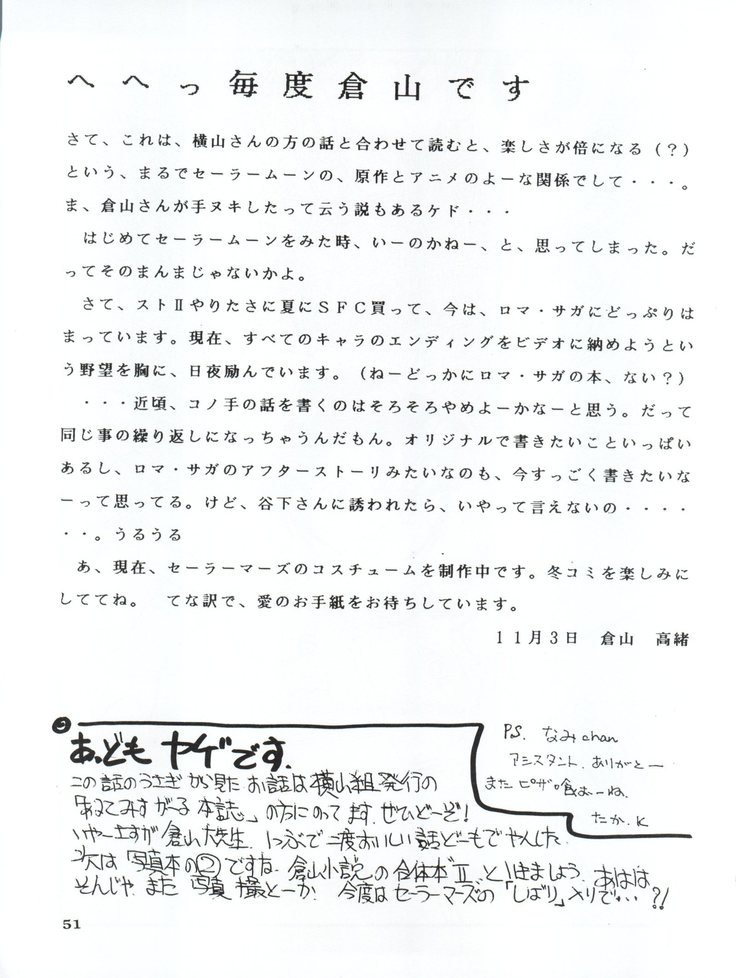 へへっ毎度倉山です
さて、これは、横山さんの方の話と合わせて読むと、楽しさが倍になる(?)
という、まるでセーラームーンの、原作とアニメのよーな関係でして・・・。
ま、倉山さんが手ヌキしたって云う説もあるケド・・・
はじめてセーラームーンをみた時、いーのかねー、と、思ってしまった。だ
ってそのまんまじゃないかよ。
さて、ストⅡやりたさに夏にSFC買って、今は、ロマ・サガにどっぷりは
まっています。現在、すべてのキャラのエンディングをビデオに納めようとい
う野望を胸に、日夜励んでいます。(ねーどっかにロマ・サガの本、ない?)
・・・近頃、コノ手の話を書くのはそろそろやめよーかなーと思う。だって
同じ事の繰り返しになっちゃうんだもん。オリジナルで書きたいこといっぱい
あるし、ロマ・サガのアフターストーリみたいなのも、今すっごく書きたいな
ーって思ってる。けど、谷下さんに誘われたら、いやって言えないの・・・・
・・。うるうる
あ、現在、セーラーマーズのコスチュームを制作中です。冬コミを楽しみに
しててね。 てな訳で、愛のお手紙をお待ちしています。
11月3日 倉山 高緒
あ、ども ヤゲです.
この話のうさぎから見たお話は横山組発行の
「ねてみすがる本誌」の方にのってます ぜひどーぞ!
いやーさすが倉山大先生 1つぶで二度おいしい話どーもでやんした
次は「写真本の②」ですな 倉山小説の合体本Ⅱ といきましょう あはは
そんじゃ また 写真 撮とーか 今度はセーラーマーズの「しばり」入りで…?!
P.S. なみchan
アシスタント、ありがとー
また ピザ喰おーね、
たか.K
51